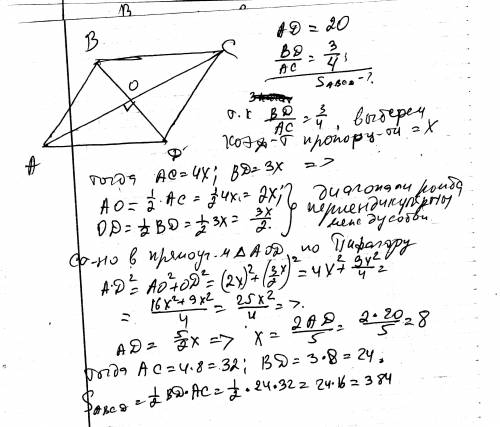 B
B C
O
A D
AD = 20
BD/AC = 3/4;
S ABCD - ?
т.к BD/AC = 3/4, выберем
коэф-т пропорц-ти = X
тогда AC=4X; BD=3X =>
AO = 1/2·AC = 1/2 4X = 2X;
OD = 1/2 BD = 1/2 3X = 3X/2.
} диагонали ромба
перпендикулярны
между собой
в прямоуг-м △AOD по Пифагору
AD² = AO²+OD² = (2X)²+(3X/2)² = 4X²+9X²/4 =
= 16X²+9X²/4 = 25X²/4 = >.
AD = 5/2X => X = 2AD/5 = 2·20/5 = 8
тогда AC=4·8=32; BD=3·8=24.
S ABCD = 1/2 BD·AC = 1/2·24·32 = 24·16 = 384